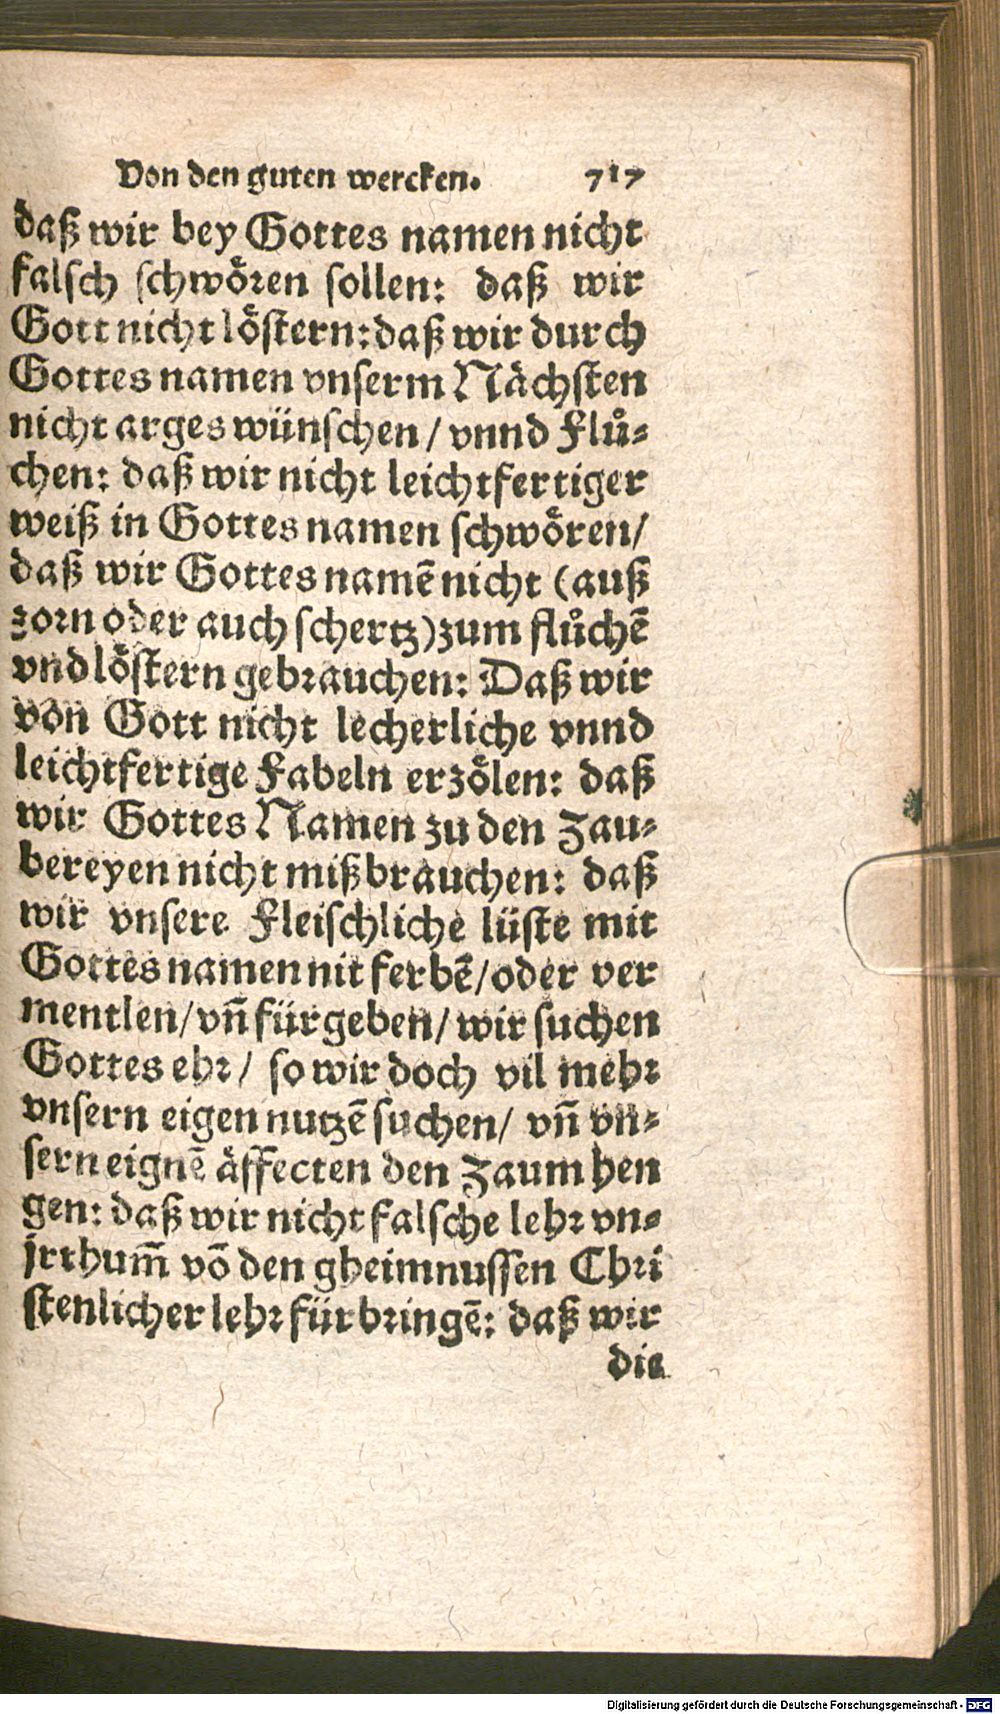 Von den guten wercken. 717
daß wir bey Gottes namen nicht
falsch schwören sollen: daß wir
Gott nicht löstern: daß wir durch
Gottes namen vnserm Nächsten
nicht arges wünschen / vnnd Flů⸗
chen: daß wir nicht leichtfertiger
weiß in Gottes namen schwören/
daß wir Gottes namẽ nicht (auß
zorn oder auch schertz) zum flůchẽ
vnd löstern gebrauchen: Daß wir
von Gott nicht lecherliche vnnd
leichtfertige Fabeln erzölen: daß
wir Gottes Namen zu den Zau⸗
bereyen nicht mißbrauchen: daß
wir vnsere Fleischliche lüste mit
Gottes namen nit ferbẽ/ oder ver
mentlen/ vñ fürgeben/ wir suchen
Gottes ehr/ so wir doch vil mehr
vnsern eigen nutzẽ suchen/ vñ vn⸗
sern eignẽ äffecten den Zaum hen
gen: daß wir nicht falsche lehr vn⸗
jrthum̃ võ den gheimnussen Chri
stenlicher lehr fürbringẽ: daß wir
die
Digitalisierung gefördert durch die Deutsche Forschungsgemeinschaft - DFG